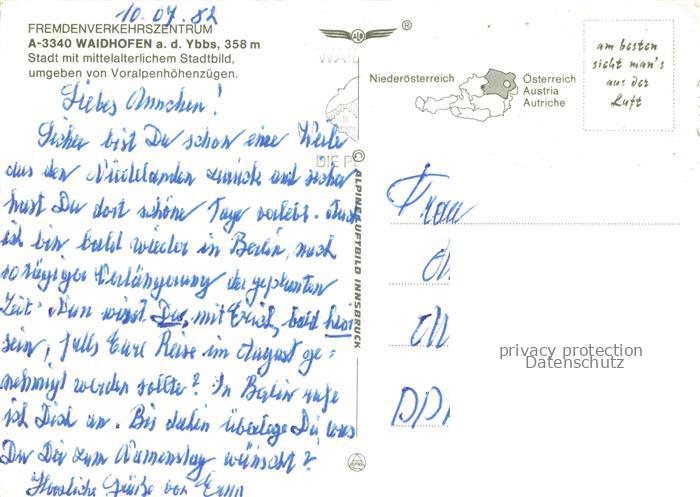 10.07.82
FREMDENVERKEHRSZENTRUM
A-3340 WAIDHOFEN a. d. Ybbs, 358 m
Stadt mit mittelalterlichem Stadtbild,
umgeben von Voralpenhöhenzügen.
Liebes Annchen!
Sicher bist Du schon eine Weile
aus den Niederlanden zurück und sicher
hast Du dort schöne Tage verlebt. Auch
ich bin bald wieder in Berlin, nach
10 tägiger Verlängerung der geplanten
Zeit. Nun wirst Du, mit Erich, bald hier
sein, falls Eure Reise im August ge-
nehmigt werden sollte? In Berlin rufe
ich Dich an. Bis dahin überlege Du was
Du Dir zum Namenstag wünscht?
Herzliche Grüße von
WAID
DIE P
© ALPINE LUFTBILD INNSBRUCK
®
Niederösterreich
Österreich
Austria
Autriche
am besten
sieht man's
aus der
Luft
Frau
DDR
privacy protection
Datenschutz